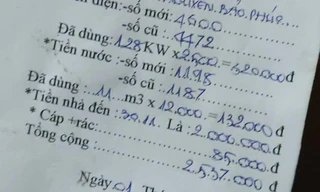 điện:-số mới: 4600
-số cũ : 4472
Đã dùng: 128 KW x 2500 = 320.000 đ
*Tiền nước :-số mới : 1198
-số cũ : 1187
Đã dùng : 11 m3 x 12.000 = 132.000 đ
*Tiền nhà đến : 30.11. Là : 2.000.000 đ
* Cáp +rác: 85.000 đ
Tổng cộng : 2.537.000 đ
Ngày 01